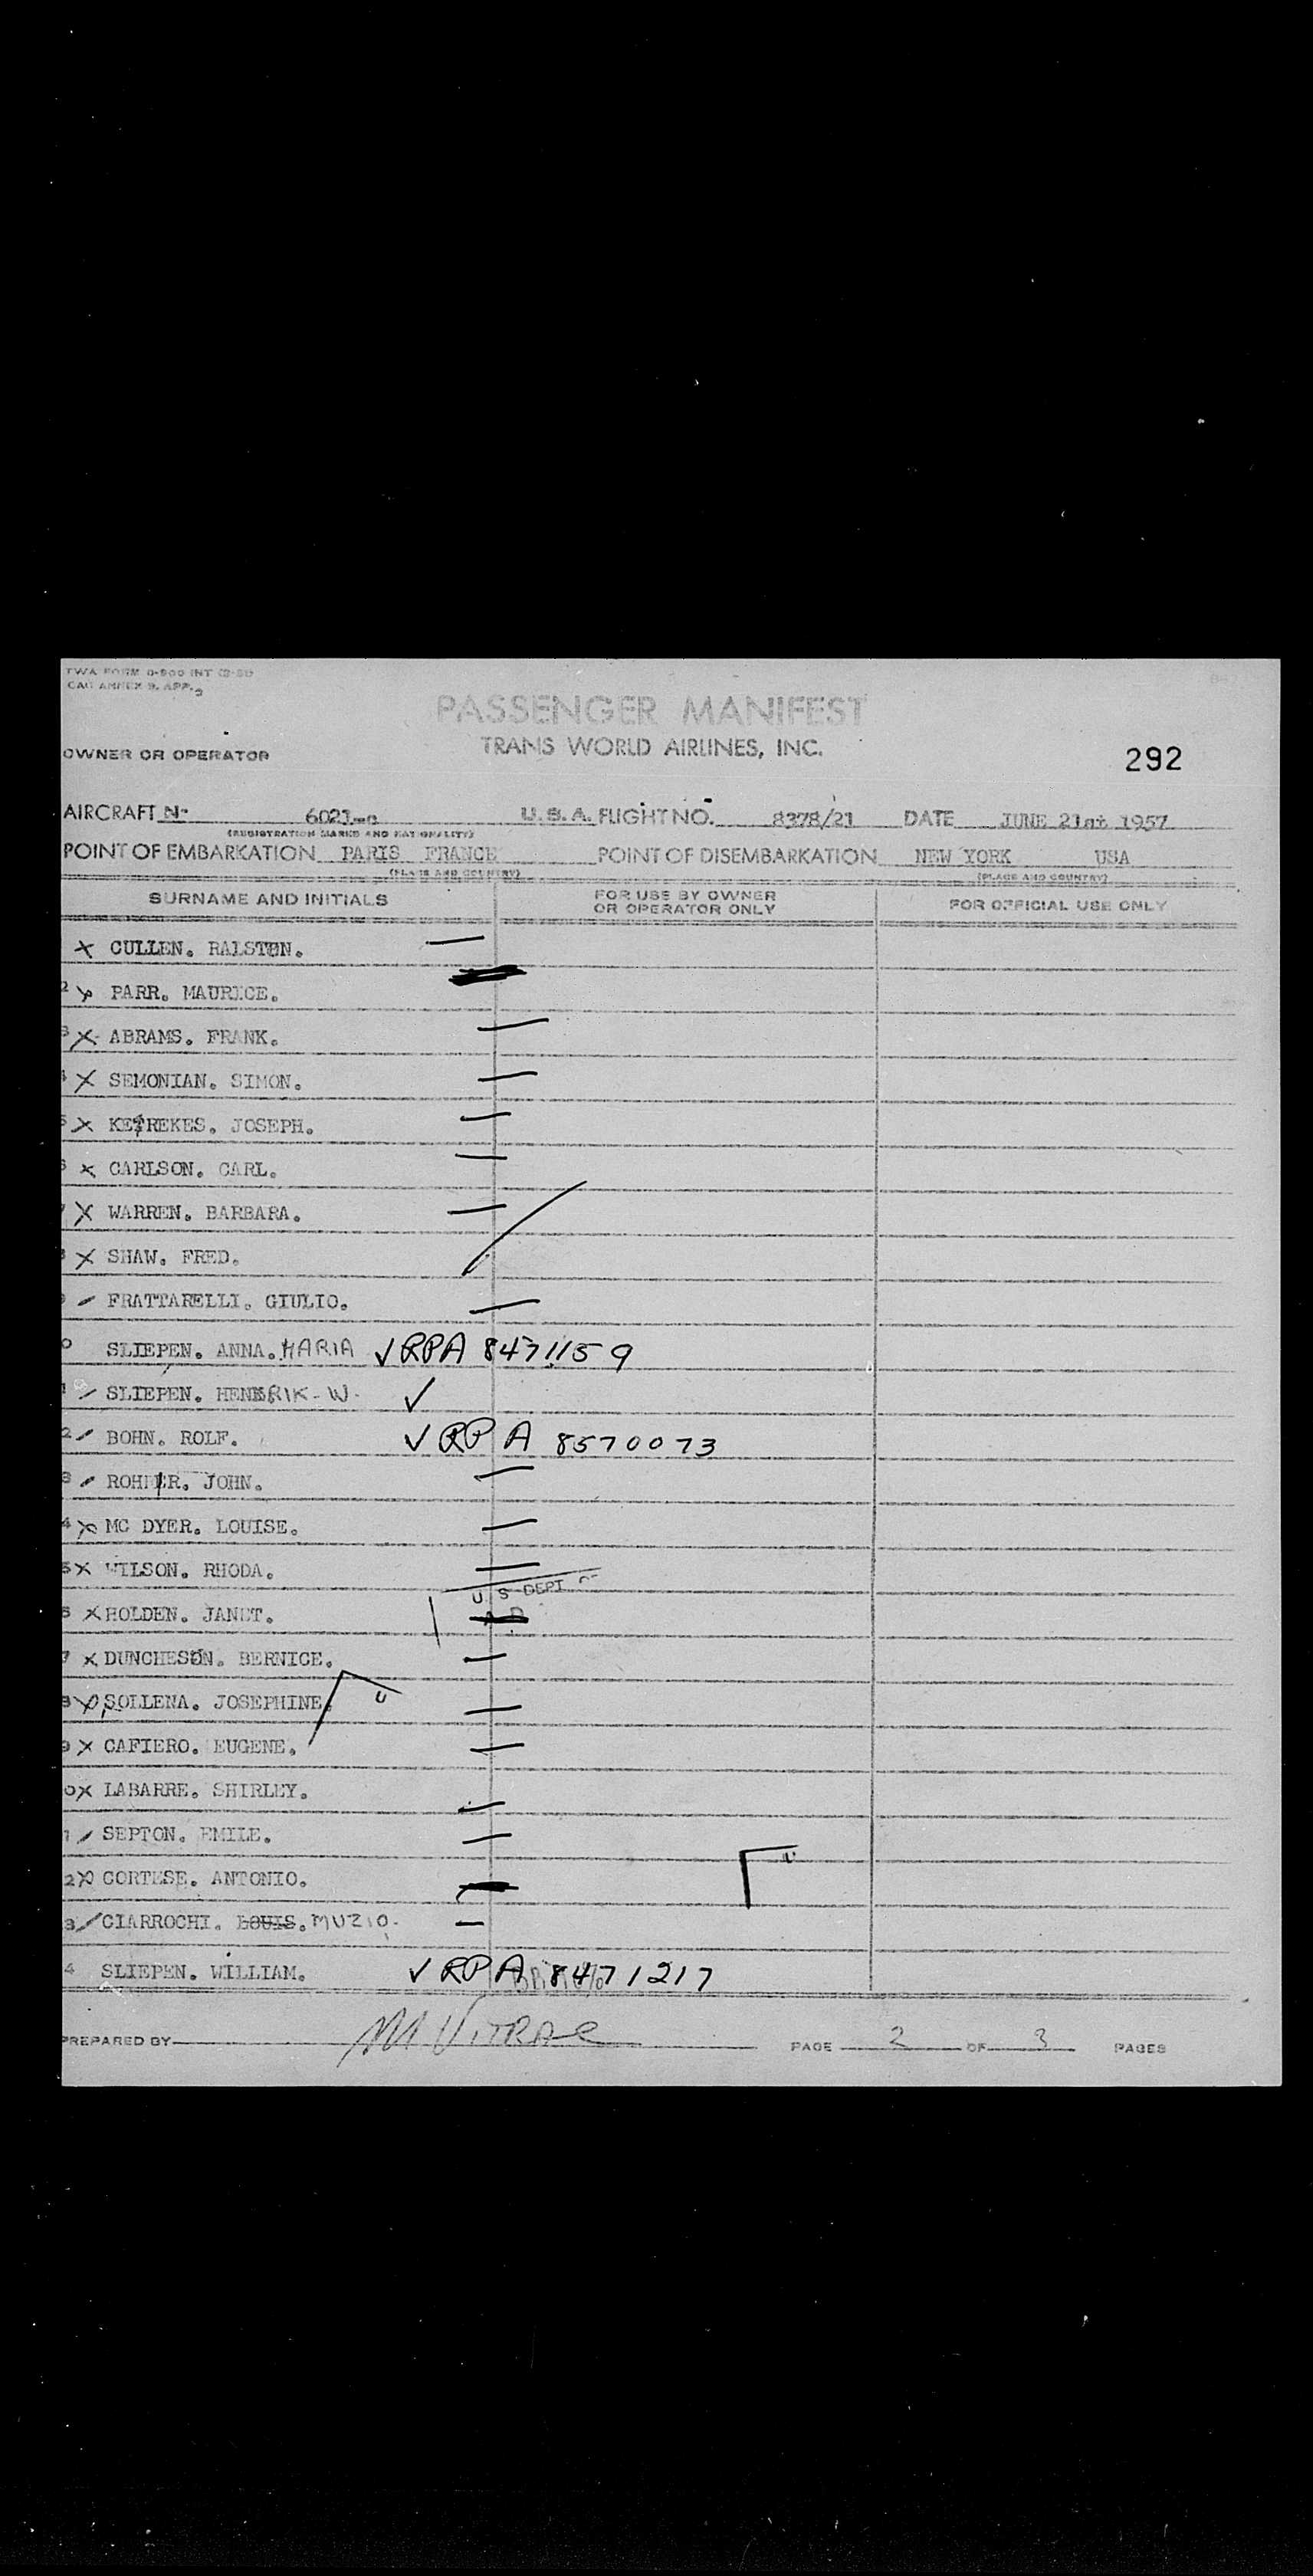 TWA FORM 0-900 INT
CAO ANNEX 9, APP. 2
PASSENGER MANIFEST
TRANS WORLD AIRLINES, INC.
OWNER OR OPERATOR
292
AIRCRAFT No 6021-c U.S.A. FLIGHT NO. 8378/21 DATE JUNE 21st 1957
(REGISTRATION MARKS AND NATIONALITY)
POINT OF EMBARKATION PARIS FRANCE POINT OF DISEMBARKATION NEW YORK USA
(PLACE AND COUNTRY) (PLACE AND COUNTRY)
SURNAME AND INITIALS FOR USE BY OWNER OR OPERATOR ONLY FOR OFFICIAL USE ONLY
X CULLEN. RALSTON.
2 X PARR. MAURICE.
3 X ABRAMS. FRANK.
4 X SEMONIAN. SIMON.
5 X KEREKES. JOSEPH.
6 X CARLSON. CARL.
7 X WARREN. BARBARA.
8 X SHAW. FRED.
9 FRATTARELLI. GIULIO.
0 SLIEPEN. ANNA. MARIA ✓ RPA 8471159
1 SLIEPEN. HENDRIK-W. ✓
2 BOHN. ROLF. ✓ RP A 8570073
3 JOHN.
4 X MC DYER. LOUISE.
5 X WILSON. RHODA.
U S DEPT
6 X HOLDEN. JANET.
7 X DUNCHESON. BERNICE.
8 X SOLLENA. JOSEPHINE.
U
9 X CAFIERO. EUGENE.
0 X LABARRE. SHIRLEY.
1 SEPTON. EMILE.
2 X CORTESE. ANTONIO.
3 CIARROCHI. LOUIS. MUZIO.
4 SLIEPEN. WILLIAM. ✓ RP A 8471217
PREPARED BY M Vitrac PAGE 2 OF 3 PAGES